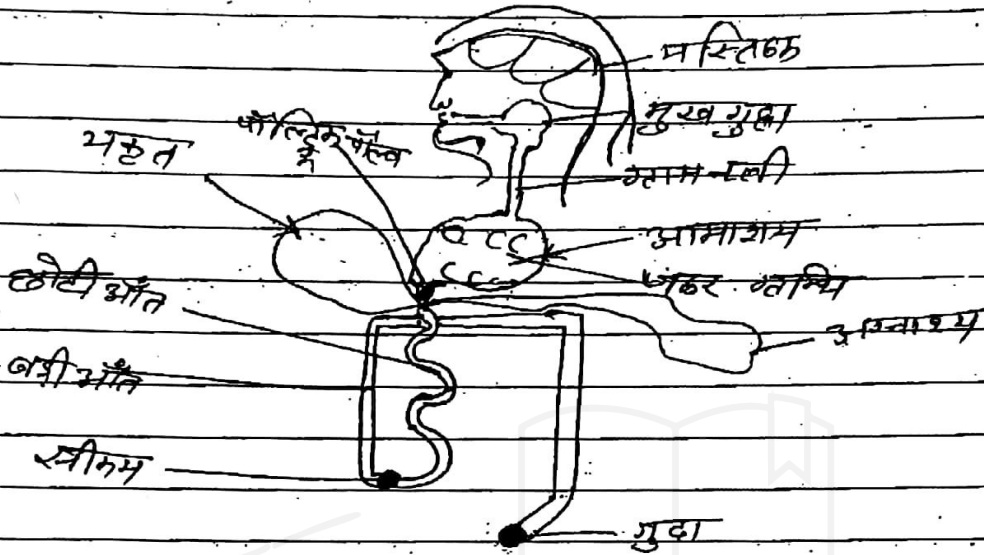 मस्तिष्क
मुख गुहा
यकृत
ग्रास नली
आमाशय
जठर ग्रन्थि
छोटी आँत
अग्नाशय
बड़ी आँत
सीकम
गुदा